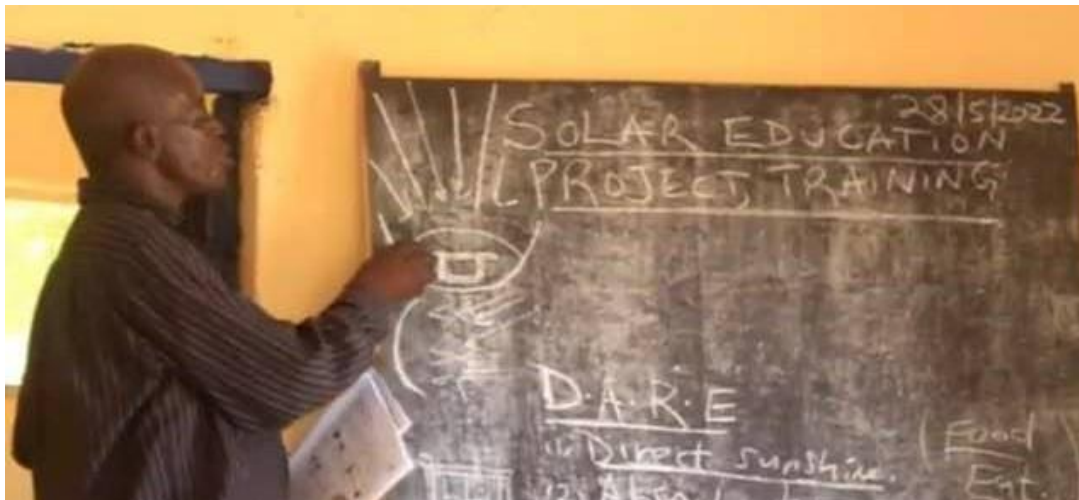 28/5/2022
SOLAR EDUCATION
PROJECT TRAINING
D.A.R.E
(1) Direct sunshine.
(Food